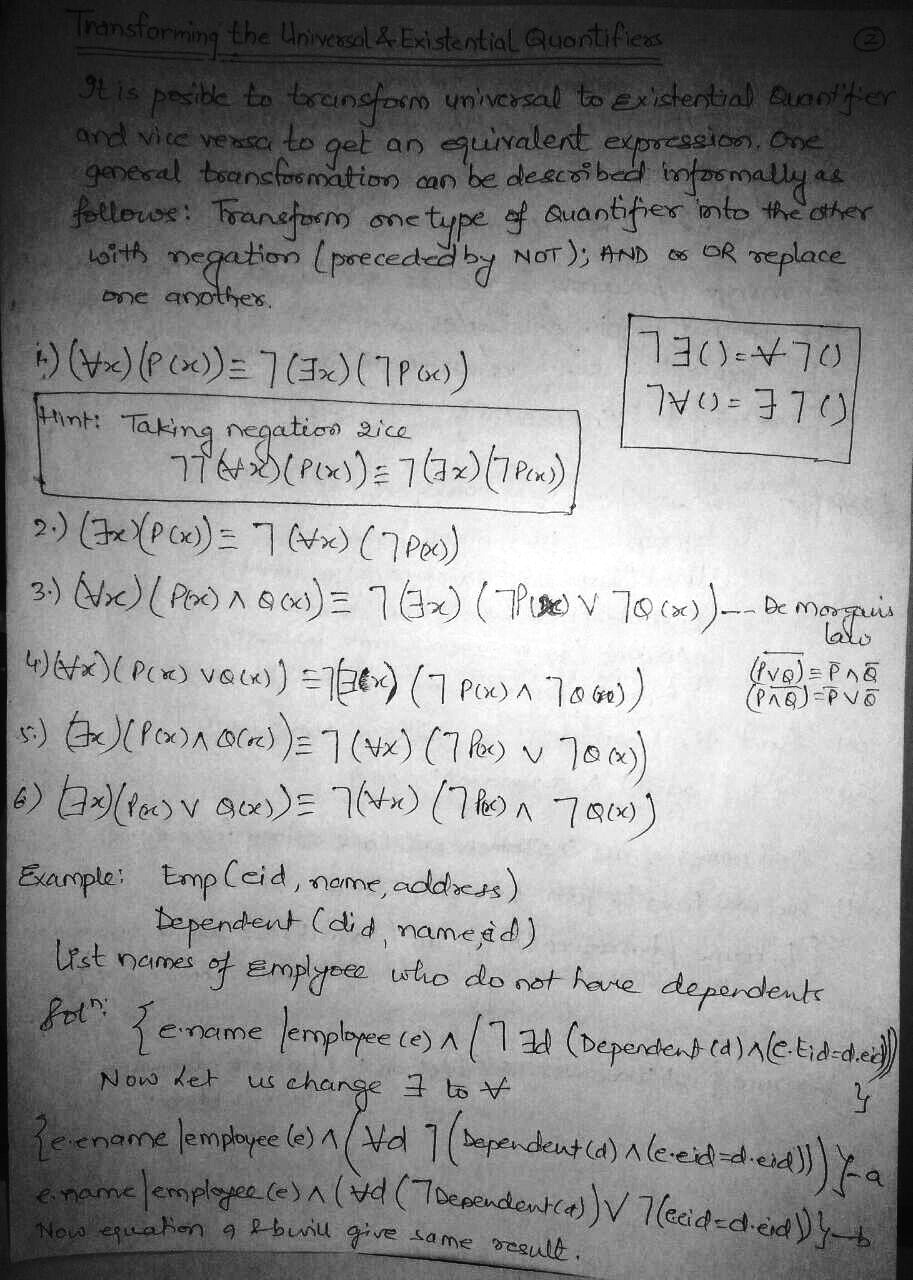 Transforming the Universal & Existential Quantifiers
②
It is posible to transform universal to Existential Quantifier
and vice versa to get an equivalent expression. One
general transformation can be described informally as
follows: Transform one type of Quantifier into the other
with negation (preceded by NOT); AND or OR replace
one another.
1.) (∀x)(P(x)) ≡ ¬(∃x)(¬P(x))
¬∃() = ∀¬()
¬∀() = ∃¬()
Hint: Taking negation 2ice
¬¬(∀x)(P(x)) ≡ ¬(∃x)(¬P(x))
2.) (∃x)(P(x)) ≡ ¬(∀x)(¬P(x))
3.) (∀x)(P(x) ∧ Q(x)) ≡ ¬(∃x)(¬P(x) ∨ ¬Q(x)) -- De morgan's
law
4) (∀x)(P(x) ∨ Q(x)) ≡ ¬(∃x)(¬P(x) ∧ ¬Q(x))
(P̅∨̅Q̅) = P̅ ∧ Q̅
(P̅∧̅Q̅) = P̅ ∨ Q̅
5.) (∃x)(P(x) ∧ Q(x)) ≡ ¬(∀x)(¬P(x) ∨ ¬Q(x))
6) (∃x)(P(x) ∨ Q(x)) ≡ ¬(∀x)(¬P(x) ∧ ¬Q(x))
Example: Emp (eid, name, address)
Dependent (did, name, eid)
List names of Emplyoee who do not have dependents
Solⁿ: {e.name | employee (e) ∧ (¬∃d (Dependent (d) ∧ (e.Eid=d.eid))
}
Now Let us change ∃ to ∀
{e.ename | employee (e) ∧ (∀d ¬(Dependent (d) ∧ (e.eid=d.eid)))} - a
e.name | employee (e) ∧ (∀d (¬Dependent (d)) ∨ ¬(e.eid=d.eid))} - b
Now equation a & b will give same result.